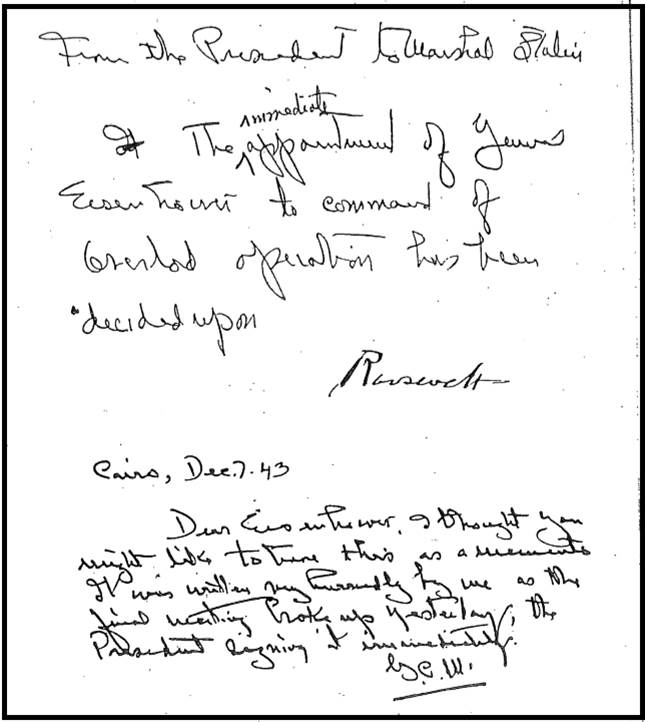 From the President to Marshal Stalin
immediate
The appointment of General
Eisenhower to command of
Overlord operation has been
decided upon
Roosevelt
Cairo, Dec. 7. 43
Dear Eisenhower, I thought you
might like to have this as a memento
It was written very hurriedly by me as the
final meeting broke up yesterday, the
President signing it immediately.
G.C.M.